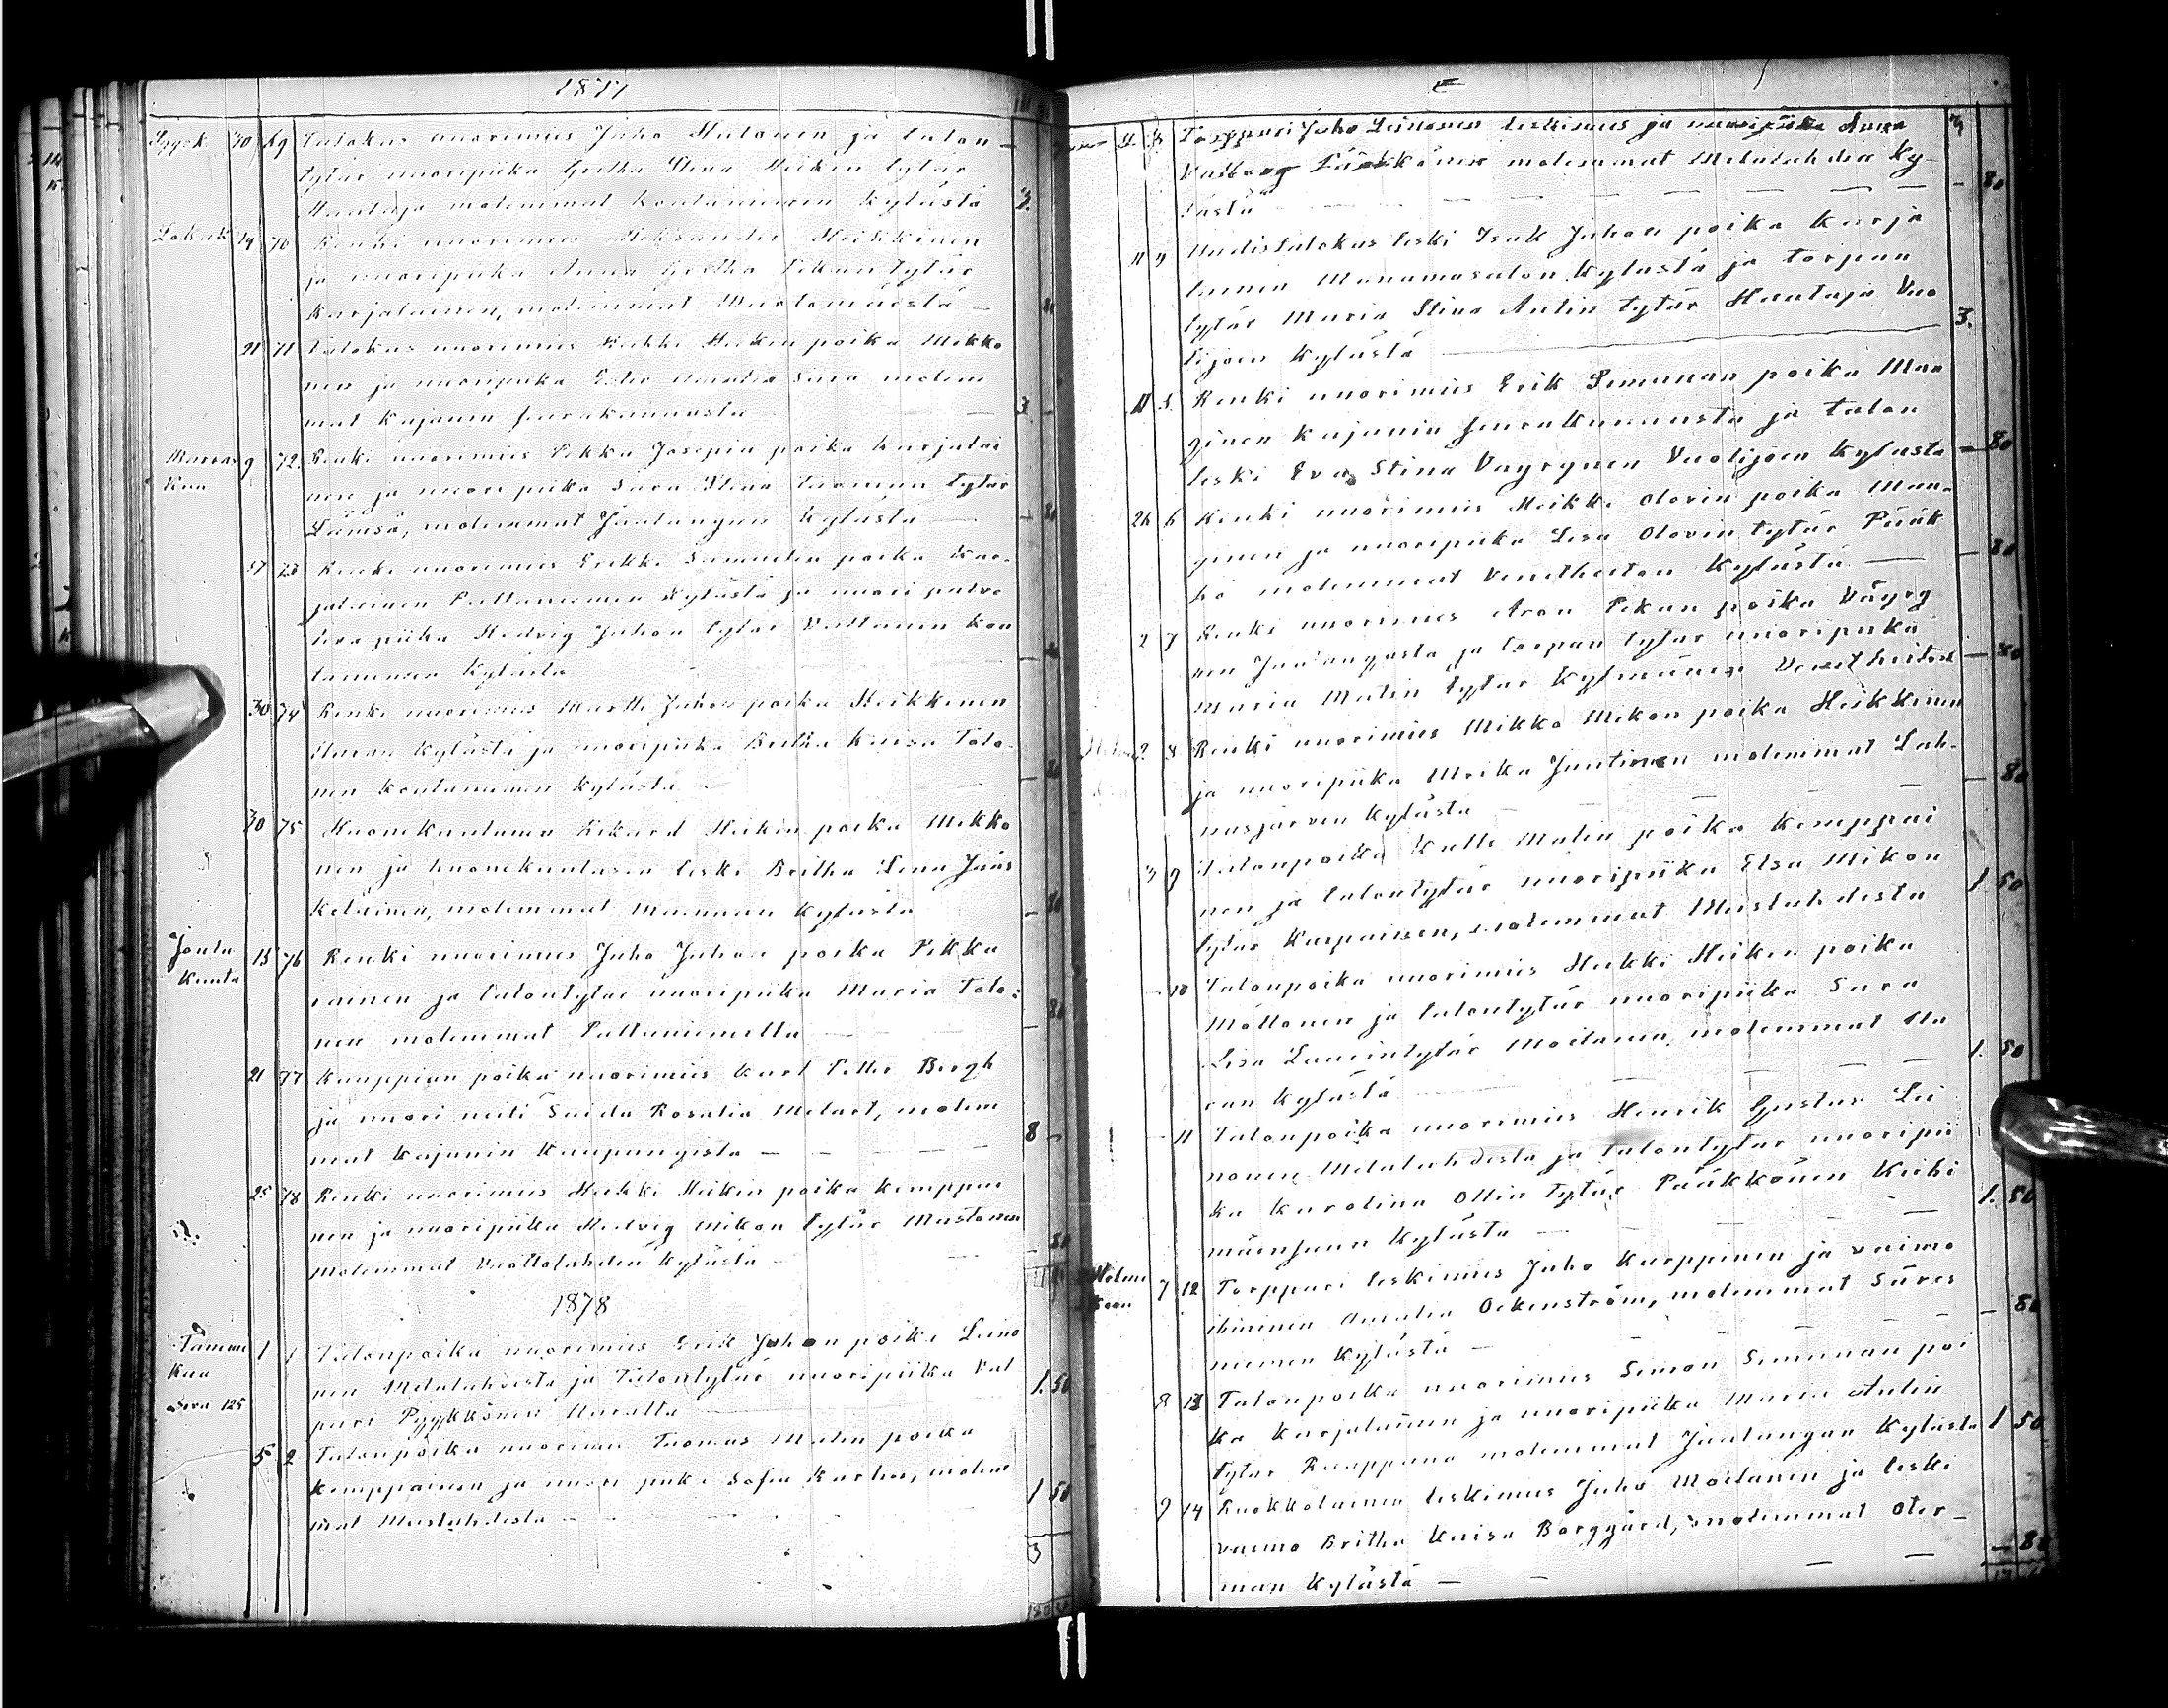 1877
Syysk. 30 69 Talokas nuorimies Juho Hulonen ja talon-
tytär nuoripiika Gretha Stina Heikin tytär
Hautaja molemmat Koutaniemen kylästä 3.
Lokak 14 70 Renki nuorimies Aleksander Heikkinen
ja nuoripiika Anna Gretha Pekan tytär
Karjalainen, molemmat 80
21 71 Talokas nuorimies Heikki Heikin poika Mikko
nen ja nuoripiika molem
mat Kajanin seurakunnasta 3 -
Marras 9 72. Renki nuorimies Pekka Josepin poika Karjalai
kuu nen ja nuori piika Sara Stina Tuomaan tytär
Lämsä, molemmat Jaalangan kylästä - 80
17 73 Renki nuorimies Erikki Samuelin poika Kar-
jalainen Paltaniemen kylästä ja nuori palve
leva piika Hedvig Juhon tytär Kou
taniemen kylästä - 80
30 74 Renki nuorimies Martti Juhon poika Heikkinen
Uuran kylästä ja nuoripiika Britha Kaisa Tolo-
nen Koutaniemen kylästä - 80
30 75 Huonekuntama Rikard Heikin poika Mikko
nen ja huonekuntasen leski Britha Lena Jääs
keläinen, molemmat kylästä - 80
Joulu 15 76 Renki nuorimies Juho Juhon poika Pikka
kuuta rainen ja talontytär nuoripiika Maria Tolo-
nen molemmat Paltaniemeltä - 80
21 77 Kauppian poika nuorimies Karl Petter Bergh
ja nuori neiti Saida Rosalia Melart, molem
mat Kajanin Kaupungista - 8 -
25 78 Renki nuorimies Heikki Heikin poika Kemppai
nen ja nuoripiika Hedvig Mikon tytär Mustonen
molemmat Vuottolahden kylästä - 80
1878
Tammi 1 1 Talonpoika nuorimies Erik Juhon poika Leino
kuu nen Melalahdesta ja Talontytär nuoripiika Val
Sivu 125 puri Pyykkönen Uuralta 1. 50
5 2 Talonpoika nuorimies Tuomas Matin poika
Kemppainen ja nuori piika Sofia Karhu, molem
mat Mieslahdesta - 1 50
3
Torppari Juho Leinonen leskimies ja nuoripiika Anna
Valborg Pääkkönen molemmat Melalahden ky-
lästä - 80
11 4 Uudistalokas leski Isak Juhon poika Karja
lainen Manamasalon kylästä ja torpan
tytär Maria Stina Antin tytär Hautaja Vuo
lijoen kylästä 3.
11 5. Renki nuorimies Erik Simunan poika Man
ginen Kajanin seurakunnasta ja talon
leski Eva Stina Väyrynen Vuolijoen kylästä - 80
26 6 Renki nuorimies Heikki Olovin poika Man-
ginen ja nuoripiika Lisa Olovin tytär Pääk
kö molemmat Venetheiton kylästä - 80
2 7 Renki nuorimies Aron Pekan poika Väyry
nen Jaalangasta ja torpan tytär nuoripiika
Maria Matin tytär Kylmänen Venetheiton - 80
2 8 Renki nuorimies Mikko Mikon poika Heikkinen
ja nuoripiika Ulrika Juntinen molemmat Lah-
nasjärven kylästä - 80
3 9 Talonpoika Kalle Matin poika Kemppai
nen ja talontytär nuoripiika Elsa Mikon
tytär Karpainen, molemmat Mieslahdesta 1 50
- 10 Talonpoika nuorimies Heikki Heikin poika
Möttönen ja talontytär nuoripiika Sara
Lisa Laurintytär Moilanen, molemmat Uu
ran kylästä 1. 50
- 11 Talonpoika nuorimies Henrik Gustav Lei
nonen Melalahdesta ja talontytär nuoripii
ka Karolina Ollin tytär Pääkkönen Kiehi
mäensuun kylästä - 1. 50
Helmi 7 12 Torppari leskimies Juho Karppinen ja vaimo
kuu ihminen Amalia Ockenström, molemmat Säres
niemen kylästä - 80
8 13 Talonpoika nuorimies Simon Simunan poi
ka Karjalainen ja nuoripiika Maria Antin
tytär Kemppana molemmat Jaalangan kylästä 1 50
9 14 Ruokkolainen leskimies Juho Moilanen ja leski
vaimo Britha Kaisa Borggård, molemmat Oter-
man kylästä - 80